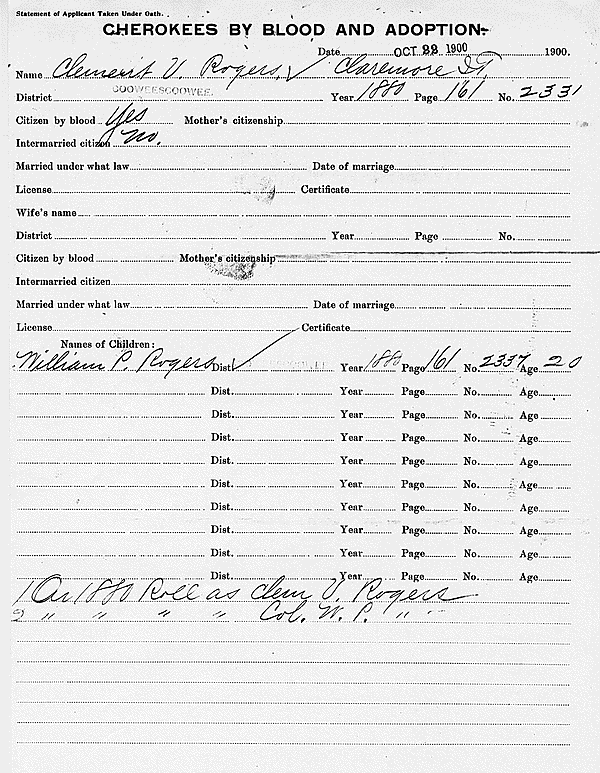 Statement of Applicant Taken Under Oath.
CHEROKEES BY BLOOD AND ADOPTION.
Date OCT 22 1900 1900.
Name Clement V. Rogers, Claremore I.T.
District COOWEESCOOWEE. Year 1880 Page 161 No. 2331
Citizen by blood Yes Mother's citizenship
Intermarried citizen No.
Married under what law Date of marriage
License Certificate
Wife's name
District Year Page No.
Citizen by blood Mother's citizenship
Intermarried citizen
Married under what law Date of marriage
License Certificate
Names of Children:
William P. Rogers Dist. Year 1880 Page 161 No. 2337 Age 20
Dist. Year Page No. Age
Dist. Year Page No. Age
Dist. Year Page No. Age
Dist. Year Page No. Age
Dist. Year Page No. Age
Dist. Year Page No. Age
Dist. Year Page No. Age
Dist. Year Page No. Age
Dist. Year Page No. Age
1 On 1880 Roll as Clem V. Rogers
2 " " " " Col. W. P. "